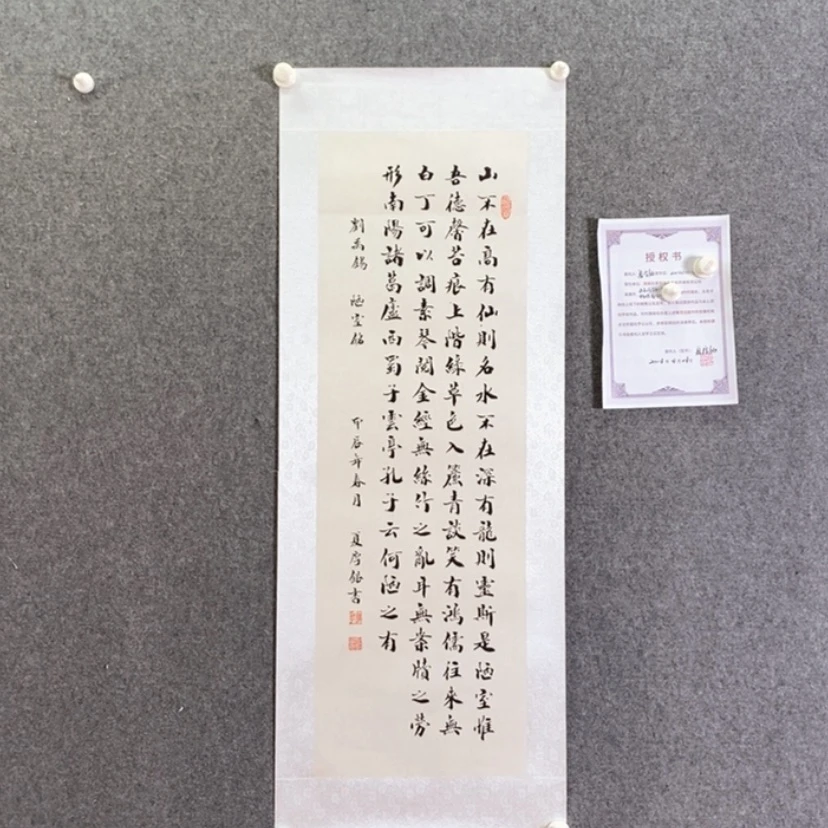 山不在高有仙則名水不在深有龍則靈斯是陋室惟
吾德馨苔痕上階綠草色入簾青談笑有鴻儒往來無
白丁可以調素琴閱金經無絲竹之亂耳無案牘之勞
形南陽諸葛廬西蜀子雲亭孔子云何陋之有
劉禹錫 陋室銘 甲辰年春月 夏 銀書
授权书